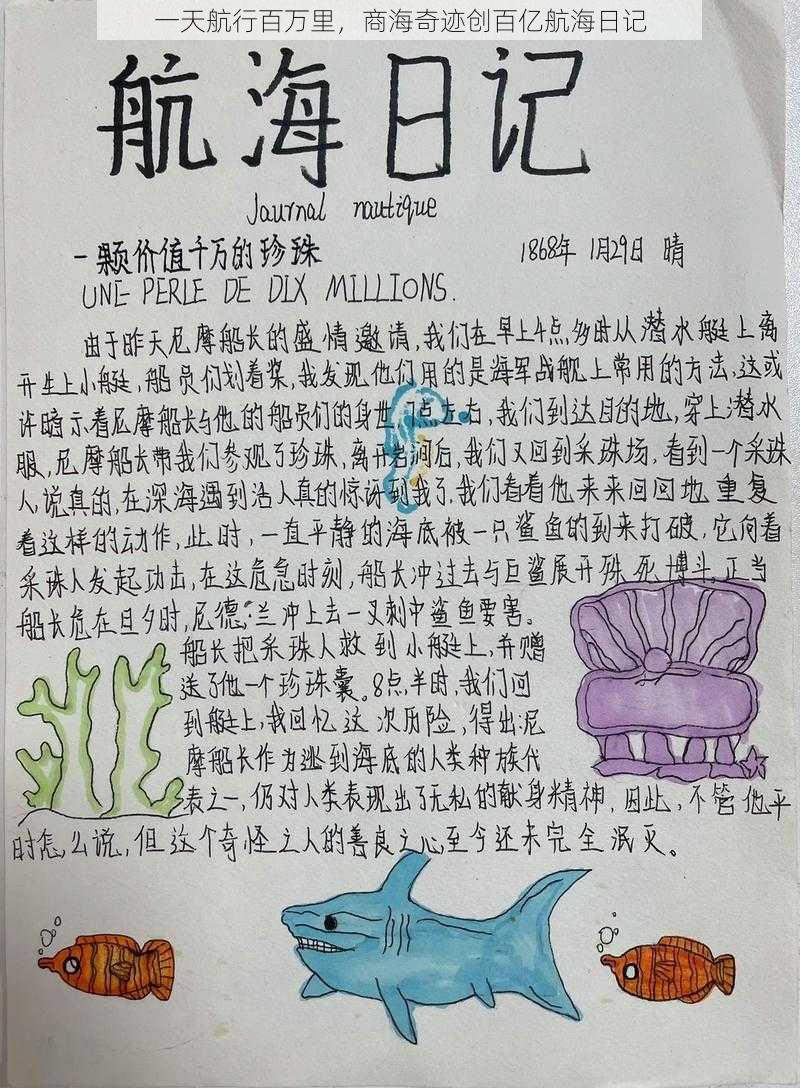 一天航行百万里，商海奇迹创百亿航海日记
航海日记
Journal nautique
一颗价值千万的珍珠 1868年 1月29日 晴
UNE PERLE DE DIX MILLIONS.
由于昨天尼摩船长的盛情邀请,我们在早上4点多时从潜水艇上离
开坐上小艇,船员们划着桨,我发现他们用的是海军战舰上常用的方法,这或
许暗示着尼摩船长与他的船员们的身世,门点左右,我们到达目的地,穿上潜水
服,尼摩船长带我们参观了珍珠,离开岩洞后,我们又回到采珠场,看到一个采珠
人,说真的,在深海遇到活人真的惊讶到我了,我们看着他来来回回地重复
着这样的动作,此时,一直平静的海底被一只鲨鱼的到来打破,它向着
采珠人发起功击,在这危急时刻,船长冲过去与巨鲨展开殊死博斗,正当
船长危在旦夕时,尼德·兰冲上去一叉刺中鲨鱼要害。
船长把采珠人救到小艇上,并赠
送了他一个珍珠囊。8点半时,我们回
到艇上,我回忆这次历险,得出:尼
摩船长作为逃到海底的人类种族代
表之一,仍对人类表现出了无私的献身精神,因此,不管他平
时怎么说,但这个奇怪之人的善良之心至今还未完全泯灭。